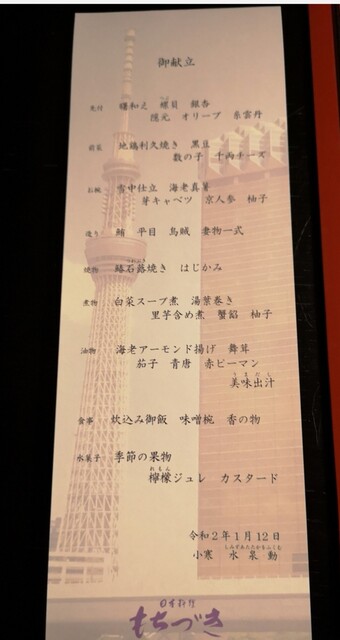 御献立
先付 和え 螺貝 銀杏
隠元 オリーブ 泉雲丹
前菜 地鶏利久焼き 黒豆
数の子 千両チーズ
お椀 雪中仕立 海老真薯
芽キャベツ 京人参 柚子
造り 鮪 平目 烏賊 妻物一式
つわぶき
焼物 鰆石蕗焼き はじかみ
煮物 白菜スープ煮 湯葉巻き
里芋含め煮 蟹餡 柚子
油物 海老アーモンド揚げ 舞茸
茄子 青唐 赤ピーマン
うまだし
美味出汁
食事 炊込み御飯 味噌椀 香の物
水菓子 季節の果物
れもん
檸檬ジュレ カスタード
令和2年1月12日
しみずあたたかをふくむ
小寒 水泉動
日本料理
もちづき